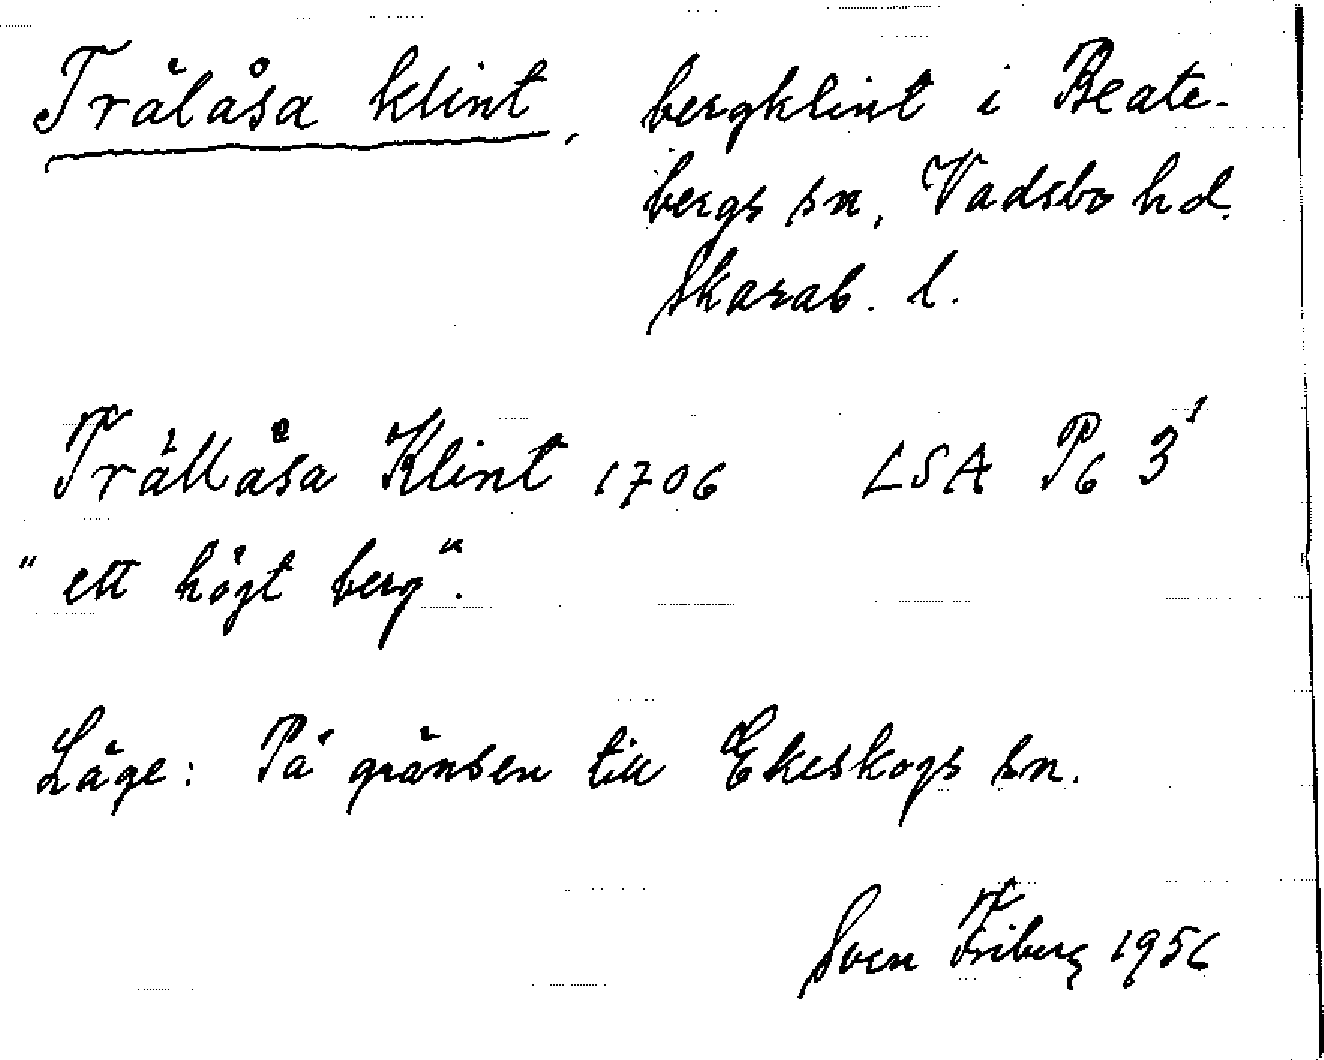 Trälåsa klint, bergklint i Beate-
bergs sn, Vadsbo hd.
Skarab. l.
Trällåsa Klint 1706 LSA P6 3¹
" ett högt berg".
Läge: På gränsen till Ekeskogs sn.
Sven Friberg 1956